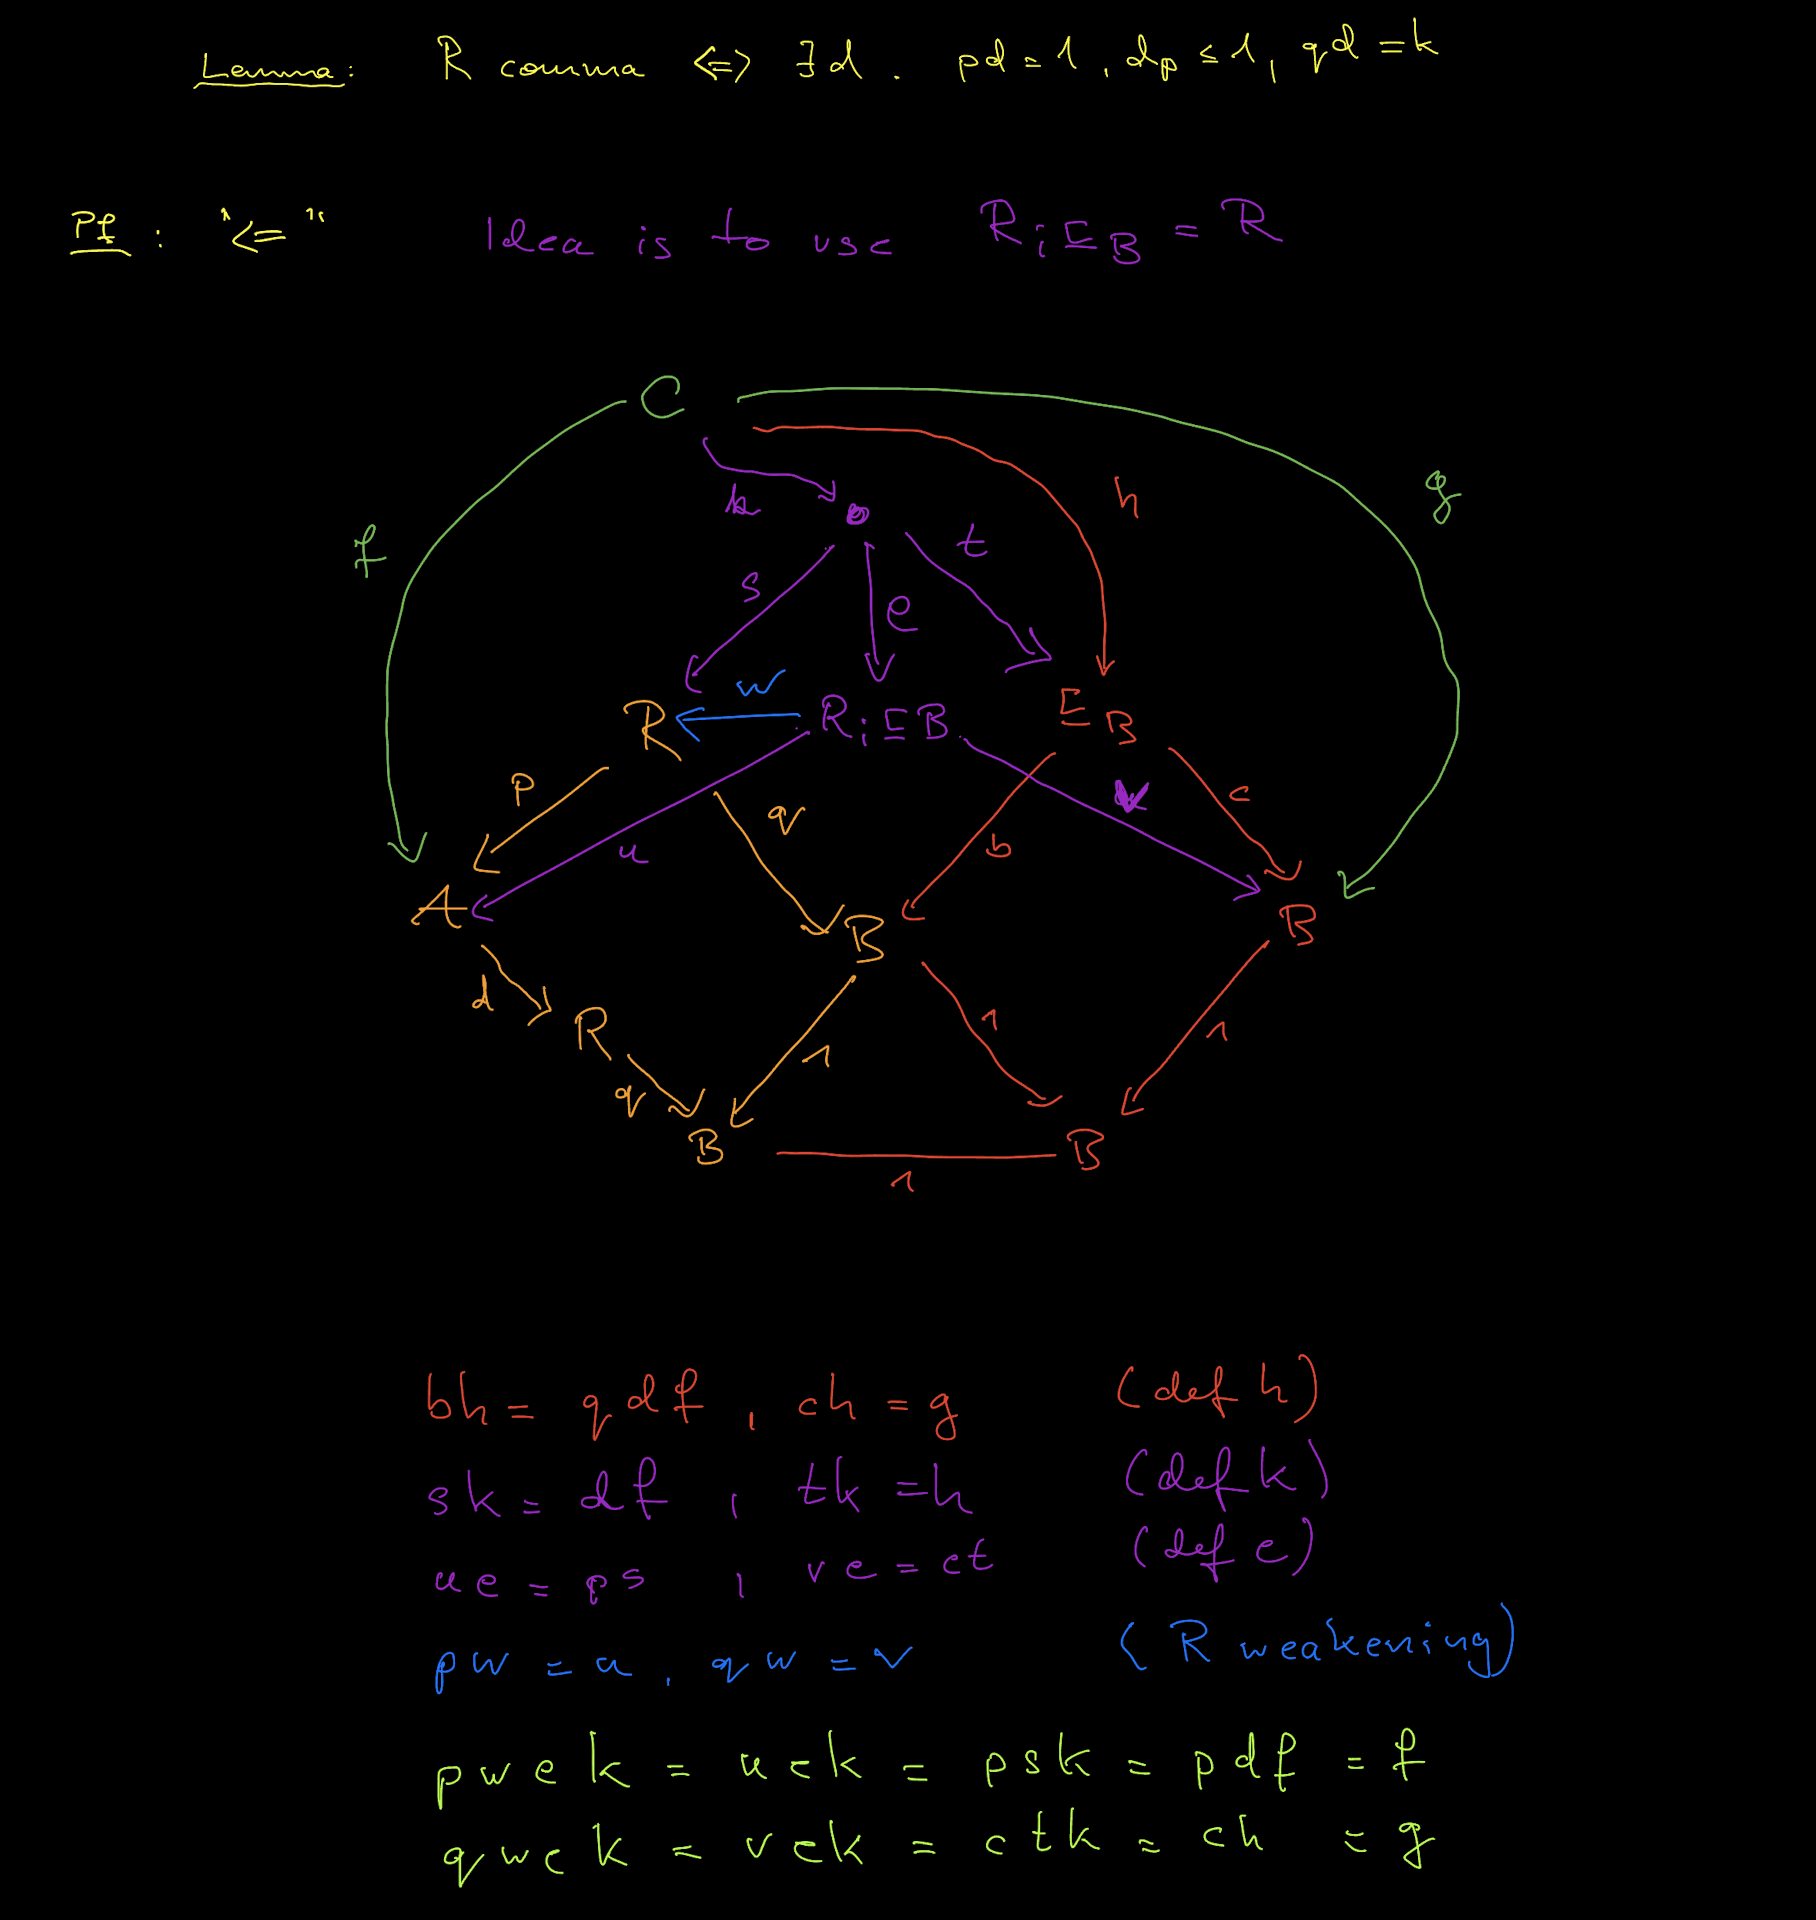 Lemma: R comma <=> ∃ d . pd = 1 , dp ≤ 1 , qd = k
Pf : "<=" Idea is to use R ; ⊑ B = R
C
k
h
g
f
s
e
t
R
w
R ; ⊑ B
⊑ B
p
q
u
b
v
c
A
B
B
d
R
1
1
1
q
B
B
1
bh = qdf , ch = g (def h)
sk = df , tk = h (def k)
ue = ps , ve = ct (def e)
pw = u , qw = v (R weakening)
pwek = uek = psk = pdf = f
qwek = vek = ctk = ch = g